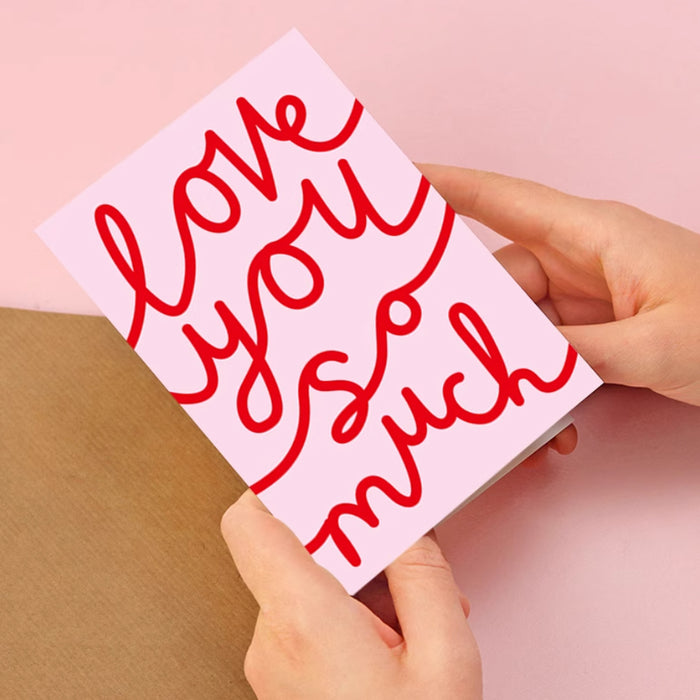 love
you
so
much